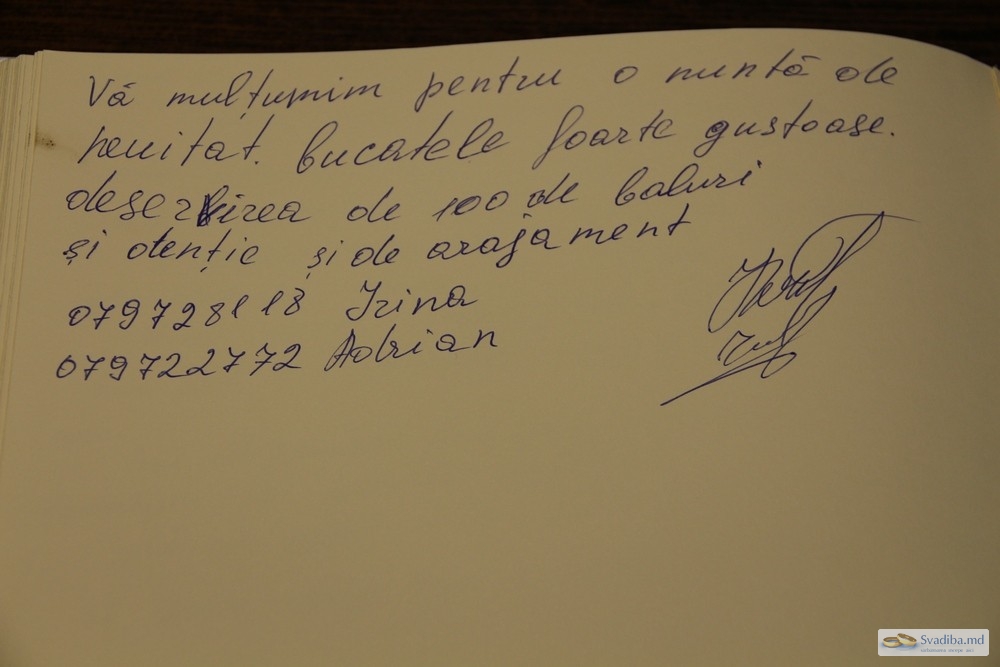 Vă mulțumim pentru o nuntă de
neuitat. bucatele foarte gustoase.
deservirea de 100 de baluri
și atenție și de arajament
079728118 Irina
079722772 Adrian
Svadiba.md